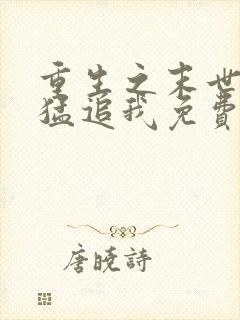 重生之末世
猛追我免费
唐晓詩